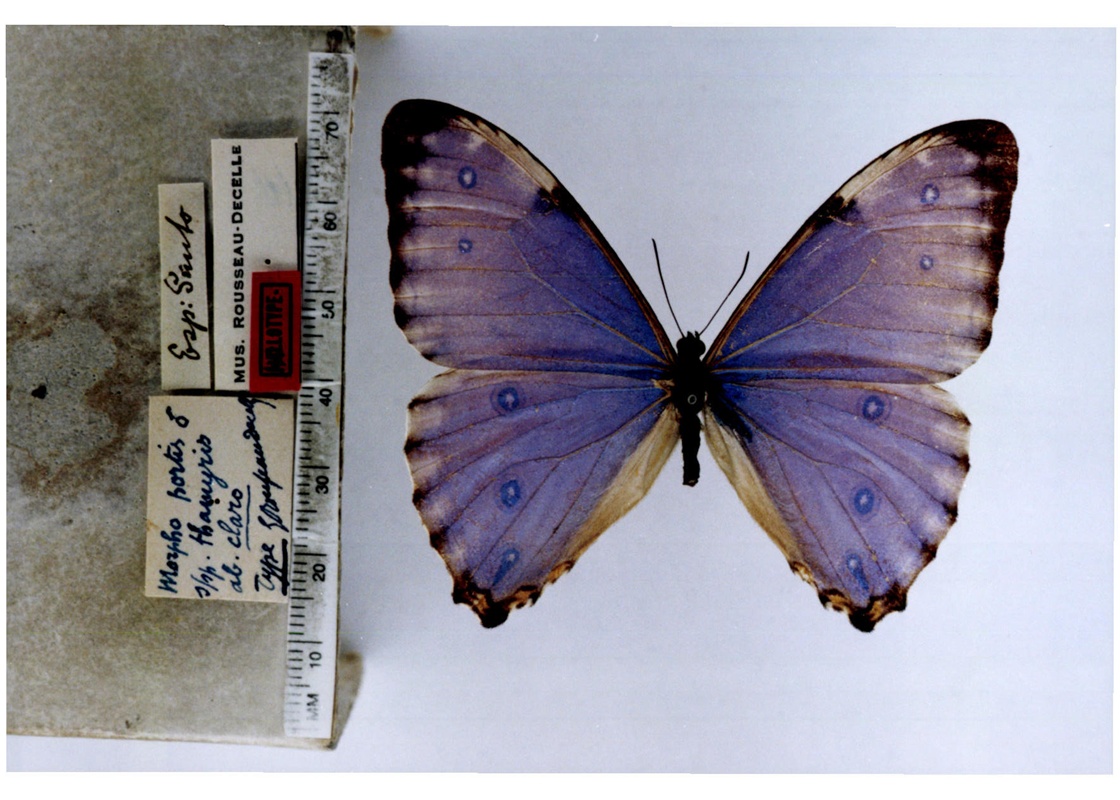 Esp: Santo
MUS. ROUSSEAU-DECELLE
HOLOTYPE
Morpho portis ♂
spp. thamyris
ab. claro
Type
MM 10 20 30 40 50 60 70